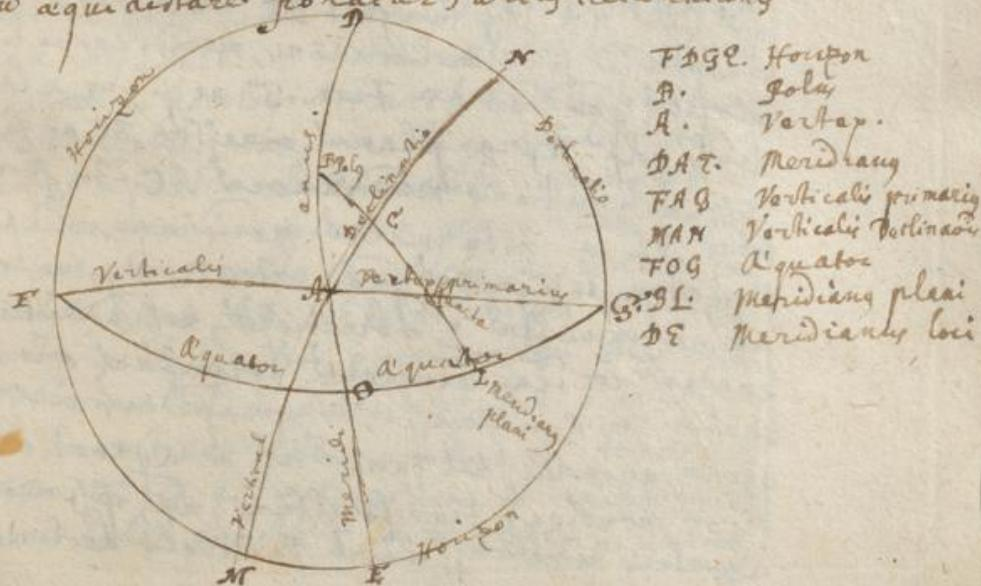 æquidistare ponatur,
D
N
Horizon
Verticalis
Polus
Declinatio
C
Verticalis
F
A
Vertex primarius
G
Æquator
O
Æquator
L
Meridianus
plani
Vertical
Meridi
Horizon
M
E
FDGE. Horizon
B. Polus
A. Vertex.
DAE. Meridianus
FAG Verticalis primarius
MAN Verticalis Declinaois
FOG Æquator
BL. Meridianus plani
DE Meridianus loci